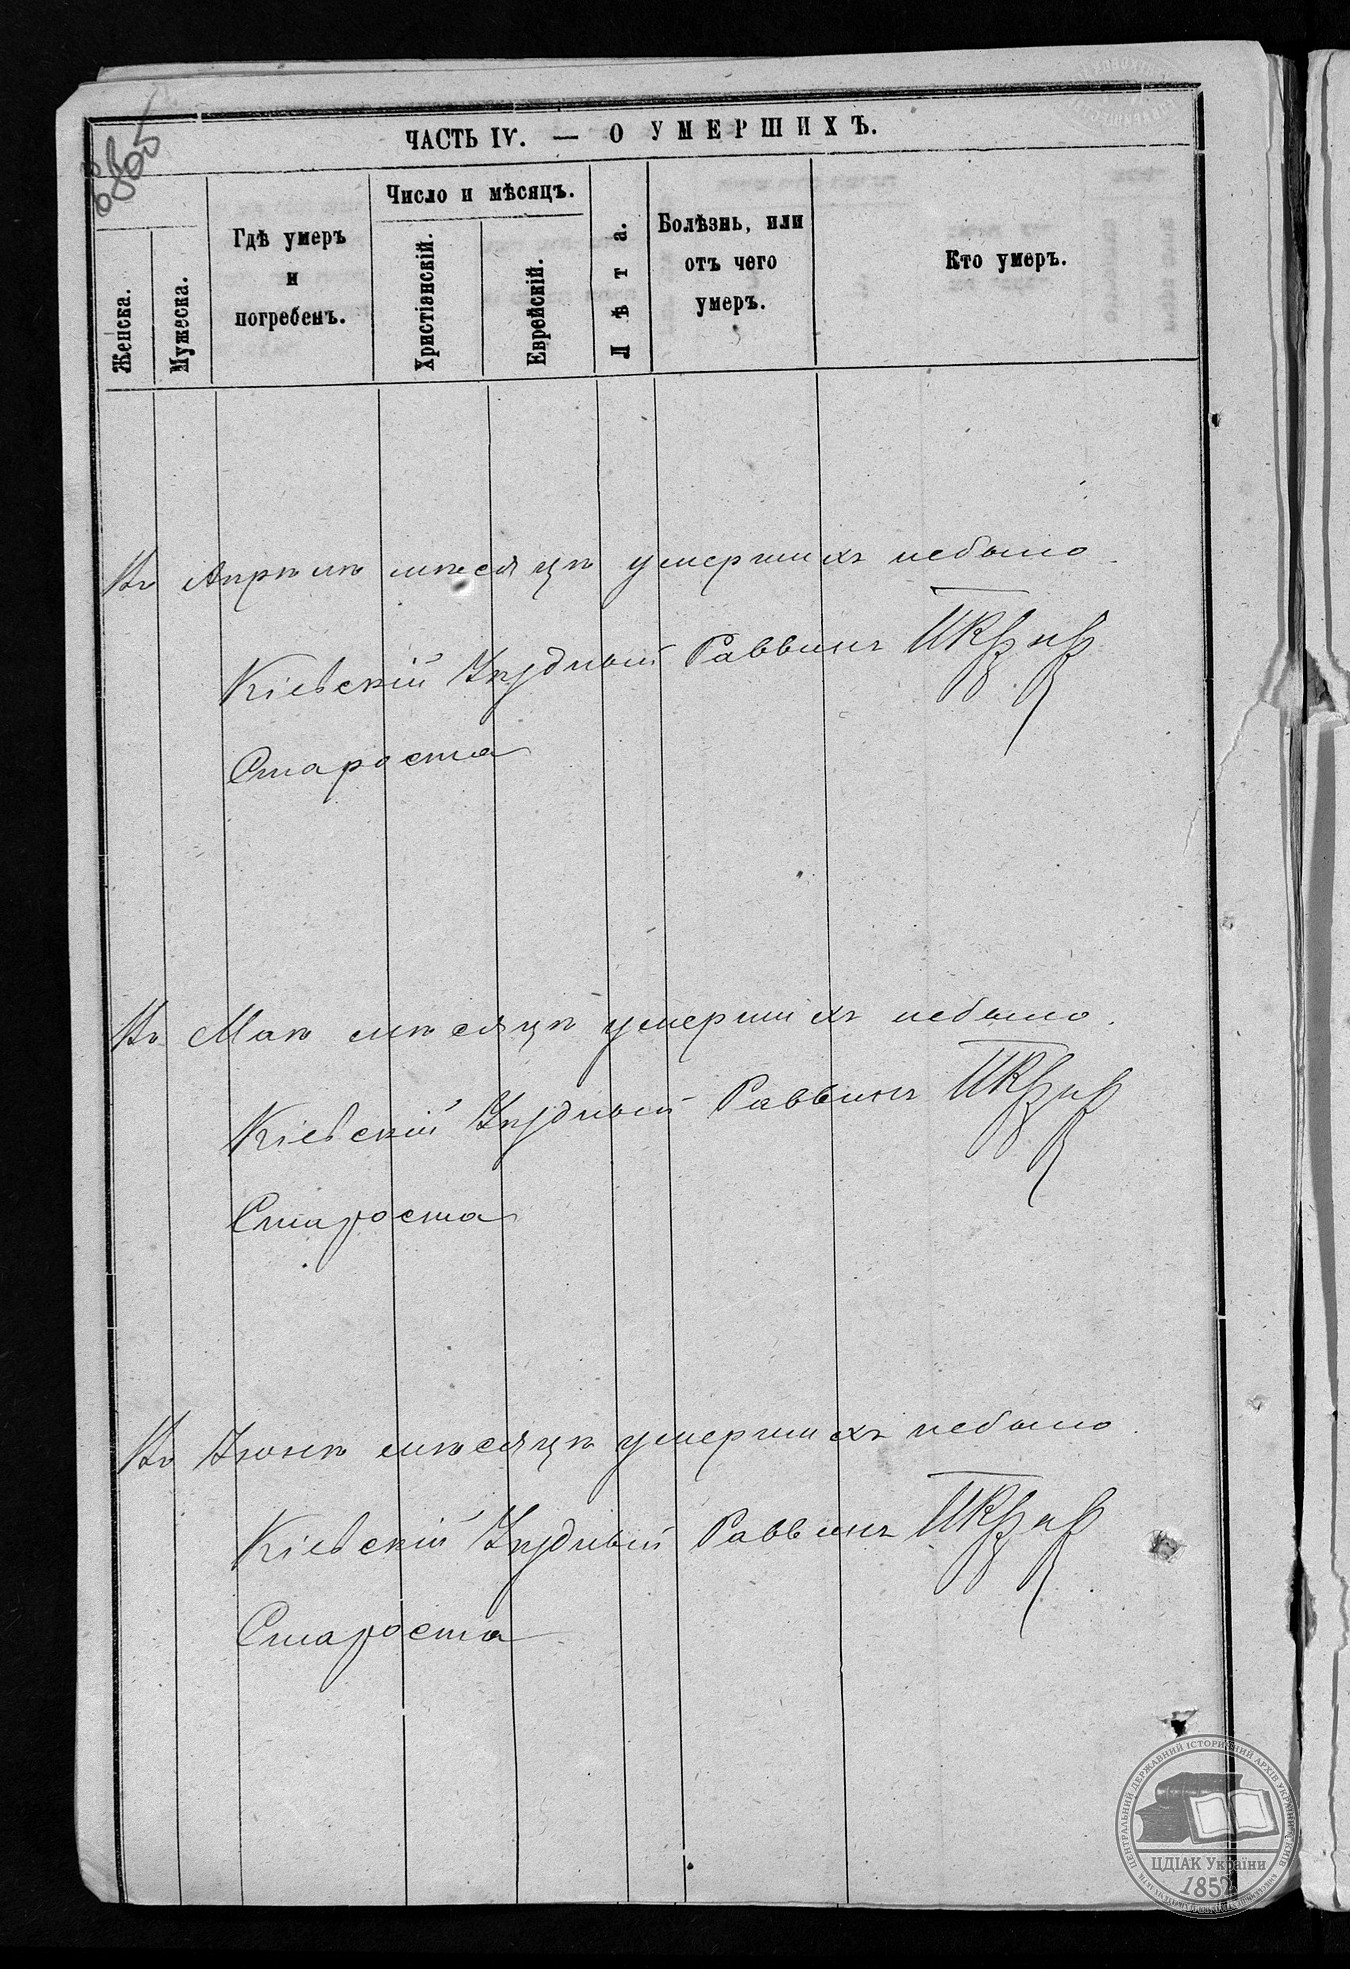 ЧАСТЬ IV. — О УМЕРШИХЪ.
Женска.
Мужеска.
Гдѣ умеръ
и
погребенъ.
Число и мѣсяцъ.
Христіанскій.
Еврейскій.
Лѣта.
Болѣзнь, или
отъ чего
умеръ.
Кто умеръ.
Въ Апрѣлѣ мѣсяцѣ умершихъ небыло
Кіевскій Уѣздный Раввинъ
Староста
Въ Маѣ мѣсяцѣ умершихъ небыло.
Кіевскій Уѣздный Раввинъ
Староста
Въ Іюнѣ мѣсяцѣ умершихъ небыло.
Кіевскій Уѣздный Раввинъ
Староста
ЦЕНТРАЛЬНИЙ ДЕРЖАВНИЙ ІСТОРИЧНИЙ АРХІВ УКРАЇНИ
ЦДІАК України
1852